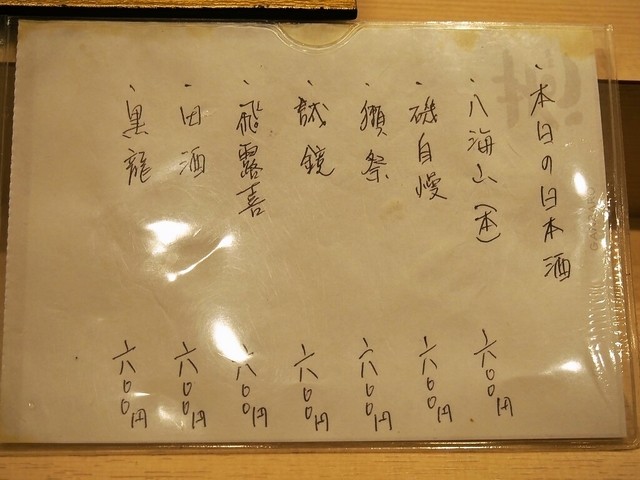 ・本日の日本酒
・八海山(本) 六〇〇円
・磯自慢 六〇〇円
・獺祭 六〇〇円
・誠鏡 六〇〇円
・飛露喜 六〇〇円
・田酒 六〇〇円
・黒龍 六〇〇円